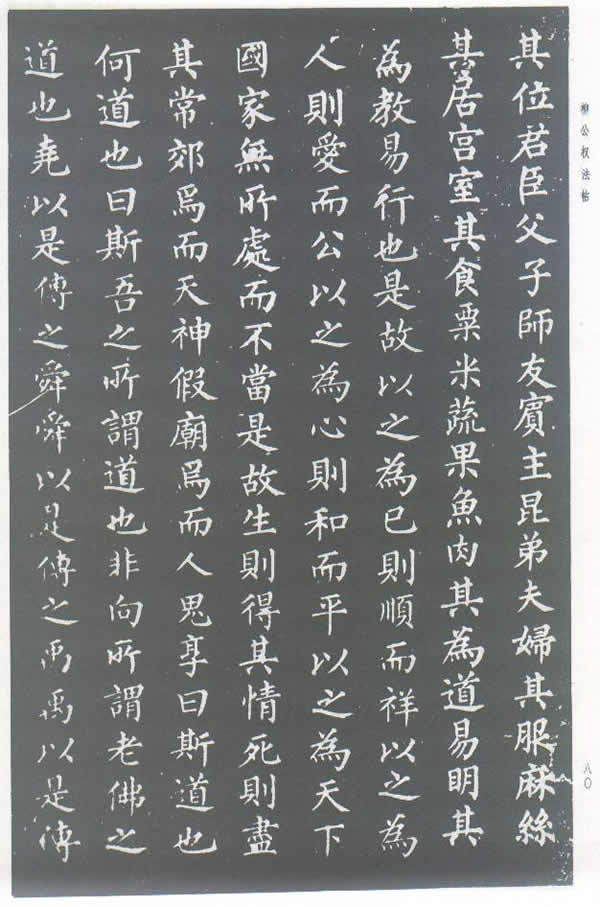 柳公权法帖
八〇
其位君臣父子師友賓主昆弟夫婦其服麻絲
其居宫室其食粟米蔬果魚肉其為道易明其
為教易行也是故以之為己則順而祥以之為
人則愛而公以之為心則和而平以之為天下
國家無所處而不當是故生則得其情死則盡
其常郊焉而天神假廟焉而人鬼享曰斯道也
何道也曰斯吾之所謂道也非向所謂老佛之
道也堯以是傳之舜舜以是傳之禹禹以是傳